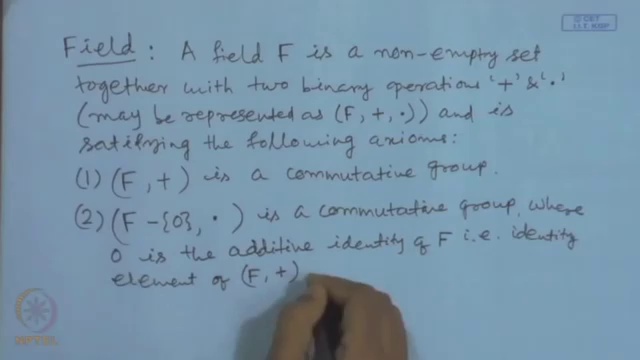 © CET
I.I.T. KGP
Field : A field F is a non-empty set
together with two binary operations '+' & '.'
(may be represented as (F, +, .)) and is
satisfying the following axioms:
(1) (F, +) is a commutative group.
(2) (F - {0}, .) is a commutative group, where
0 is the additive identity of F i.e. identity
element of (F, +)
NPTEL